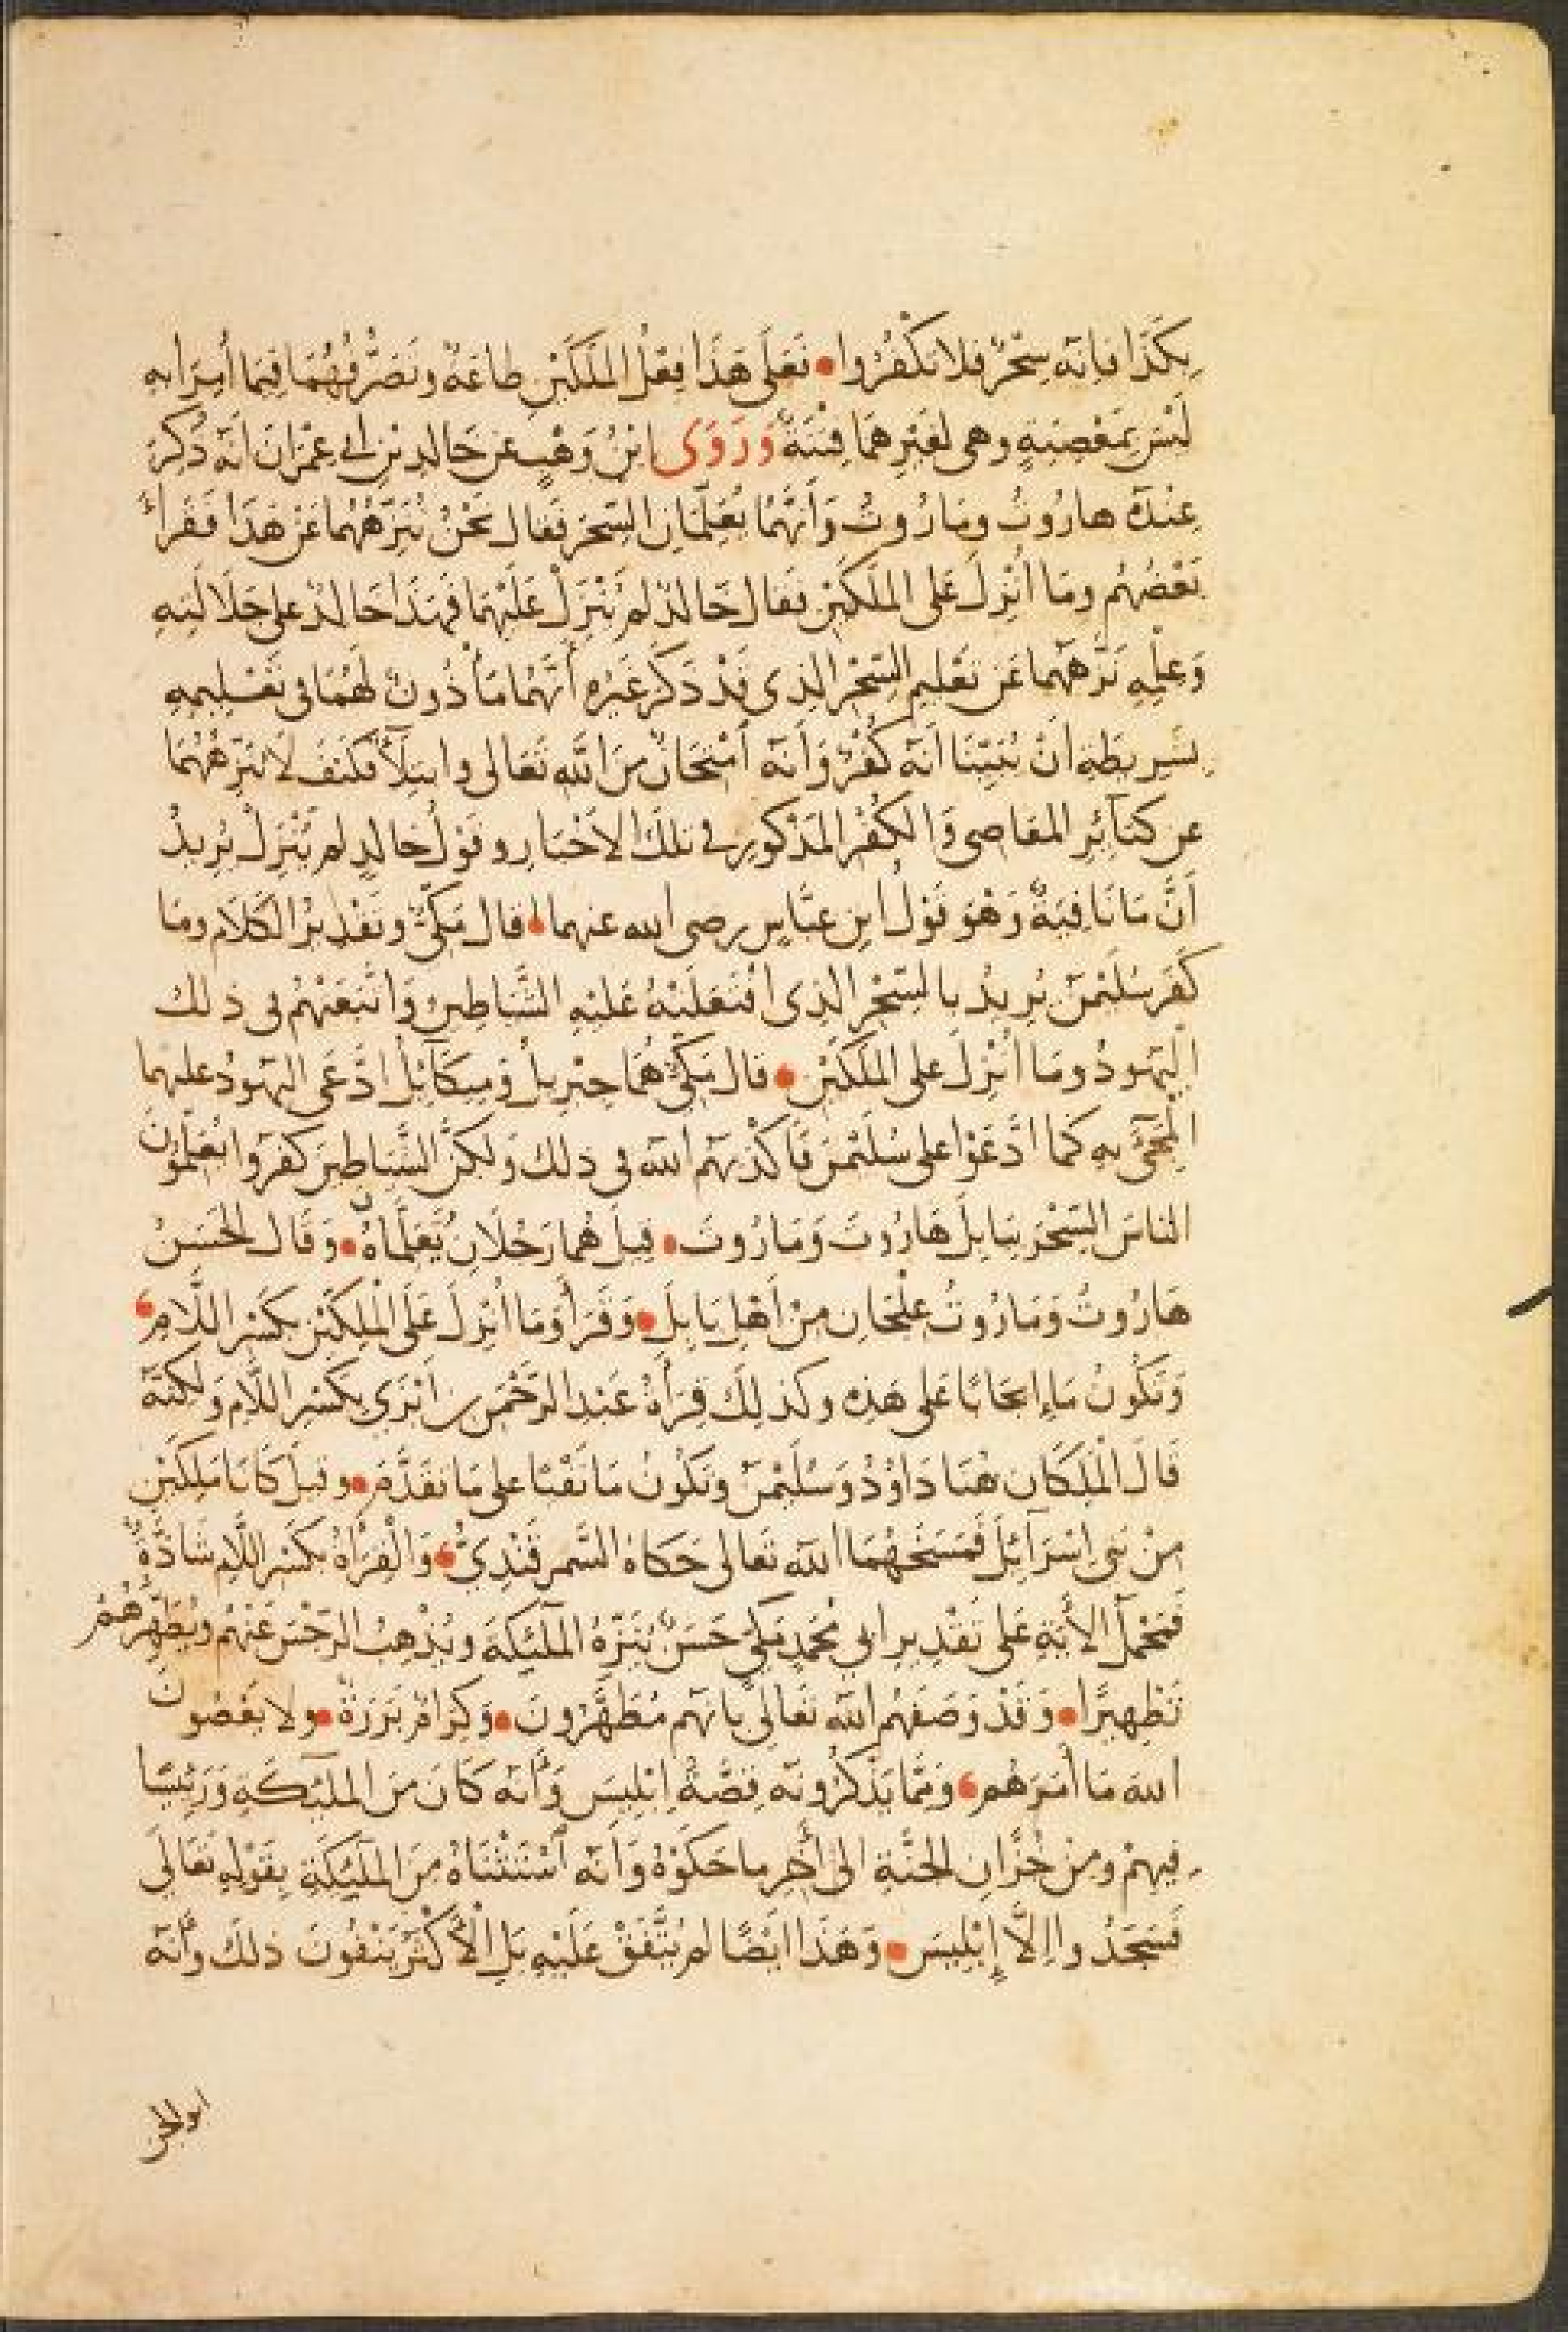 بِكَذَا فَإِنَّهُ سِحْرٌ فَلَا تَكْفُرُوا • فَعَلَى هَذَا فِعْلُ الْمَلَكَيْنِ طَاعَةٌ وَتَصَرُّفُهُمَا فِيمَا أُمِرَا بِهِ
لَيْسَ بِمَعْصِيَةٍ وهى لِغَيْرِهِمَا فِتْنَةٌ وَرَوَى ابْنُ وَهْبٍ عَنْ خَالِدِ بْنِ أبى عِمْرَانَ أَنَّهُ ذُكِرَ
عِنْدَهُ هَارُوتُ ومَارُوتُ وَأَنَّهُمَا يُعَلِّمَانِ السِّحْرَ فَقَالَ نَحْنُ نُنَزِّهُهُمَا عَنْ هَذَا فَقَرَأَ
بَعْضُهُمْ ومَا أُنْزِلَ عَلَى الْمَلَكَيْنِ فَقَالَ خَالِدٌ لم يُنْزَلْ عَلَيْهِمَا فَهَذَا خَالِدٌ على جَلَالَتِهِ
وَعِلْمِهِ نَزَّهَهُمَا عَنْ تَعْلِيمِ السِّحْرِ الذى قَدْ ذَكَرَ غَيْرُهُ أَنَّهُمَا مَأْذُونٌ لَهُمَا فى تَعْلِيمِهِ
بِشَرِيطَةِ أَنْ يُبَيِّنَا أَنَّهُ كُفْرٌ وَأَنَّهُ امْتِحَانٌ مِنَ اللَّهِ تَعَالَى وابْتِلَآءٌ فَكَيْفَ لَا نُنَزِّهُهُمَا
عن كَبَآئِرِ المَعَاصِى وَالْكُفْرِ المَذْكُورِ فى تلك الأَخْبَارِ وقَوْلُ خَالِدٍ لم يُنْزَلْ يُرِيدُ
أَنَّ مَا نَافِيَةٌ وَهْوَ قَوْلُ ابْنِ عَبَّاسٍ رضى الله عنهما • قَالَ مَكِّىٌّ وتَقْدِيرُ الْكَلَامِ ومَا
كَفَرَ سُلَيْمٰنُ يُرِيدُ بِالسِّحْرِ الذِى افْتَعَلَتْهُ عَلَيْهِ الشَّيَاطِينُ وَاتَّبَعَتْهُمْ فى ذلك
الْيَهُودُ ومَا أُنْزِلَ على المَلَكَيْنِ • قَالَ مَكِّىٌّ هُمَا جِبْرِيلُ وَمِيكَآئِلُ ادَّعَى اليَهُودُ عَلَيهِمَا
الْمَجِىءَ بِهِ كَمَا ادَّعَوْا على سُلَيْمٰنَ فَأَكْذَبَهُمُ اللَّهُ فى ذلك وَلٰكِنَّ الشَّيَاطِينَ كَفَرُوا يُعَلِّمُونَ
النَّاسَ السِّحْرَ بِبَابِلَ هَارُوتَ وَمَارُوتَ • قِيلَ هُمَا رَجُلَانِ تَعَلَّمَاهُ • وَقَالَ الْحَسَنُ
هَارُوتُ وَمَارُوتُ عِلْجَانِ مِنْ أَهْلِ بَابِلَ • وَقَرَأَ وَمَا أُنْزِلَ عَلَى الْمَلِكَيْنِ بِكَسْرِ اللَّامِ •
وَتَكُونُ مَا إِيجَابًا عَلى هَذِهِ وكَذلِكَ قِرَأَةُ عَبْدِ الرَّحْمَنِ بن أَبْزَي بِكَسْرِ اللَّامِ ولَكِنَّهُ
قَالَ الْمَلِكَانِ هُنَا دَاوُدُ وَسُلَيْمٰنُ وتَكُونُ مَا نَفْيًا على مَا تَقَدَّمَ • وقِيلَ كَانَا مَلِكَيْنِ
مِنْ بَنِى إِسْرَآئِيلَ فَمَسَخَهُمَا اللَّهُ تَعَالَى حَكَاهُ السَّمَرْقَنْدِيُّ • وَالْقِرَأَةُ بِكَسْرِ اللَّامِ شَاذَّةٌ
فَمَحْمَلُ الْأٰيَةِ عَلَى تَقْدِيرِ أبي مُحَمَّدٍ مَكِّىٍّ حَسَنٌ يُنَزِّهُ الْمَلٰئِكَةَ ويُذْهِبُ الرِّجْسَ عَنْهُمْ ويُطَهِّرُهُمْ
تَطْهِيرًا • وَقَدْ وَصَفَهُمُ اللَّهُ تَعَالَى بِأَنَّهُم مُطَهَّرُونَ • وَكِرَامٌ بَرَرَةٌ • ولَا يَعْصُونَ
اللَّهَ مَا أَمَرَهُم • وَمِمَّا يَذْكُرُونَهُ قِصَّةُ إِبْلِيسَ وَأَنَّهُ كَانَ مِنَ الْمَلٰئِكَةِ وَرَئِيسًا
فِيهِمْ ومِنْ خُزَّانِ الْجَنَّةِ الَى أٰخِرِ ما حَكَوْهُ وَأَنَّهُ اسْتَثْنَاهُ مِنَ الْمَلٰئِكَةِ بِقَوْلِهِ تَعَالَى
فَسَجَدُوا إِلَّا إِبْلِيسَ • وَهَذَا أَيْضًا لم يُتَّفَقْ عَلَيْهِ بَلِ الْأَكْثَرُ يَنْفُونَ ذلكَ وأَنَّهُ
ابو الجن